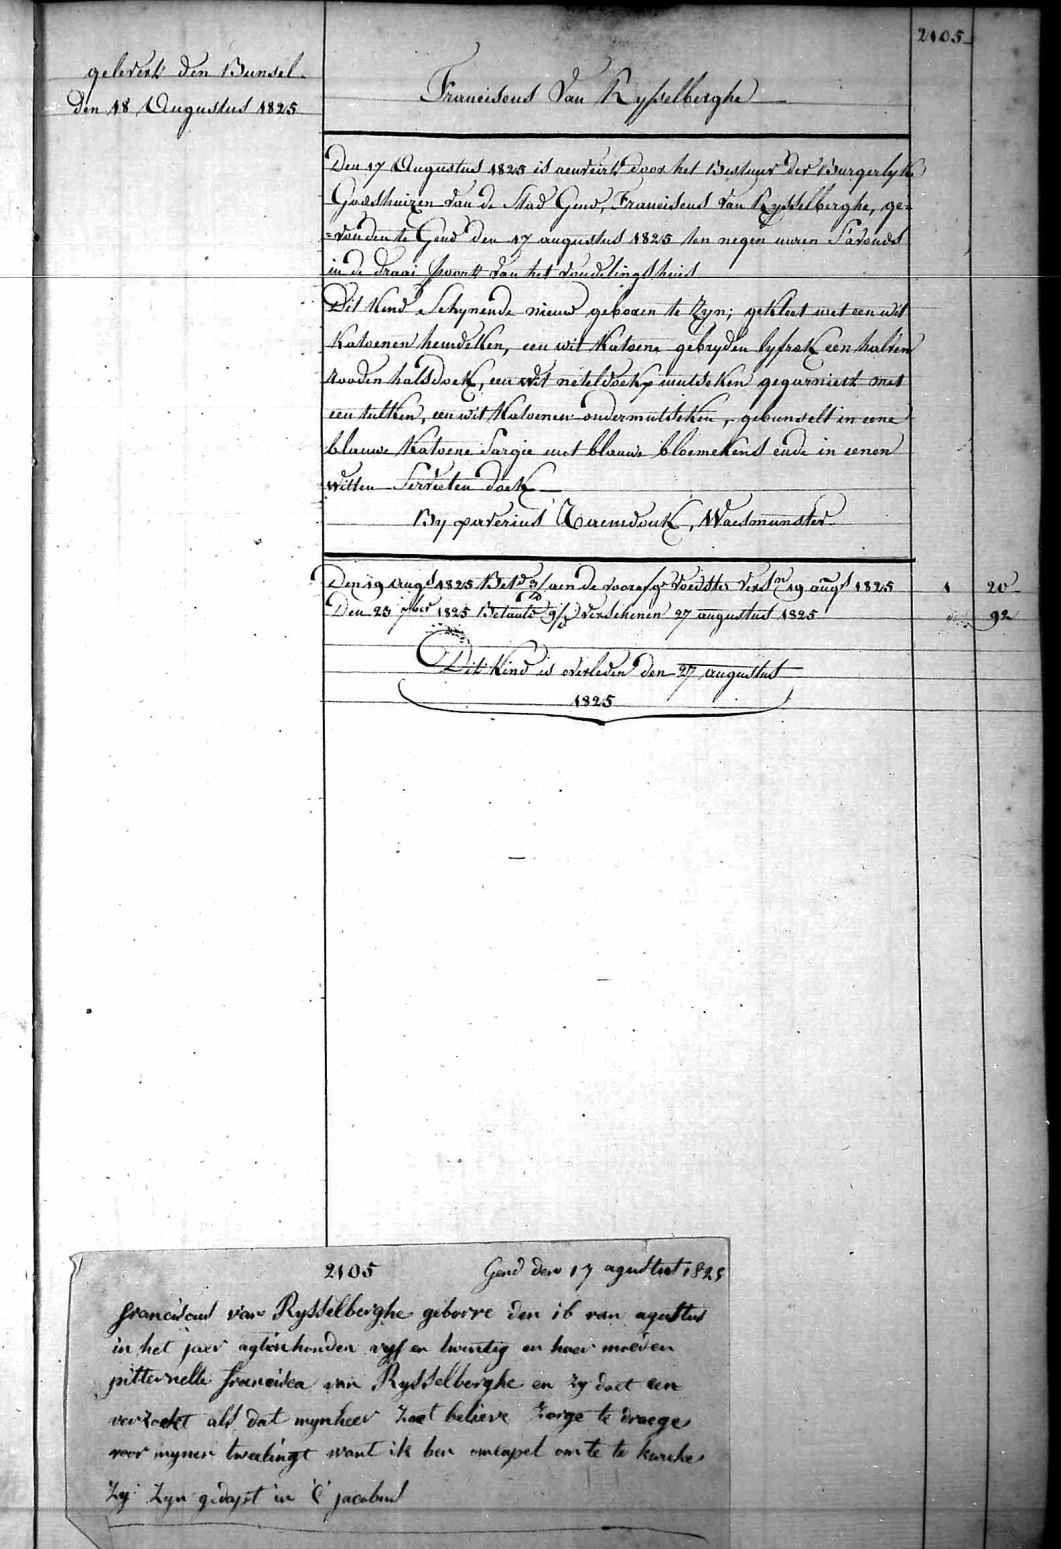 2105
gelevert den Bunsel
den 18 Augustus 1825
Franciscus Van Rysselberghe
Den 17 Augustus 1825 is aenveirt door het Bestuur der Burgerlyke
Godshuizen van de Stad Gend, Franciscus Van Rysselberghe, ge=
=vonden te Gend den 17 augustus 1825 ten negen uuren S'avonds
in de draai poort van het vondelingshuis
Dit Kind Schynende nieuw geboren te Zyn; gekleet met een wit
Katoenen hemdeken, een wit Katoene gebryden lyfrok een halven
rooden halsdoek, een wit neteldoekx mutseken gegarniert met
een tulken, een wit Katoenen ondermutseken, gebunselt in eene
blauwe Katoene Sargie met blauwe bloemekens ende in eenen
witten Servieten doek
By xaverius, Waesmunster
Den 19 Augs 1825 Betd 3/ aen de voorss voedster versn 19 augs 1825 1 20
Den 23 7ber 1825 Betaald 9/ verschenen 27 augustus 1825 92
Dit Kind is overleden den 27 augustus
1825
2105 Gend den 17 agustus 1825
franciscus van Rysselberghe geborre den 16 van agustus
in het jaer agtienhonden vyf en twintig en haer moeder
pitternelle francisca van Rysselberghe en zy doet een
verzoekt als dat mynheer zoet believe zorge te draege
voor mynen tweelingt want ik ben omcapel om te te
Zy Zyn gedopt in S jacobus